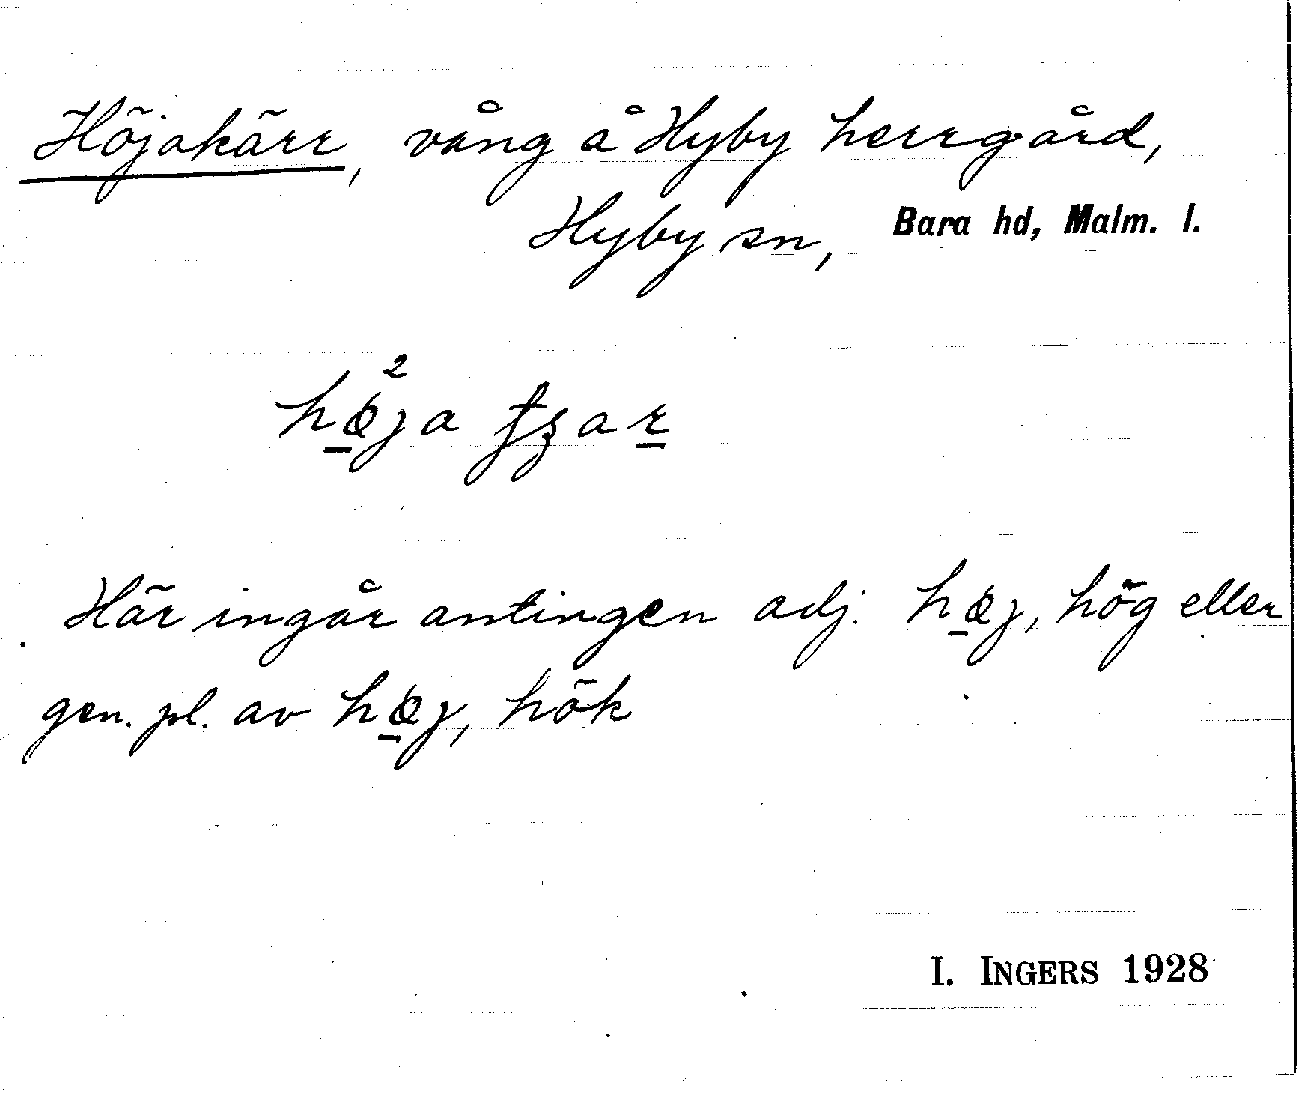 Höjakärr, vång å Hyby herrgård,
Hyby sn, Bara hd, Malm. l.
Här ingår antingen adj. hœj, hög eller
gen. pl. av hœj, hök
I. INGERS 1928